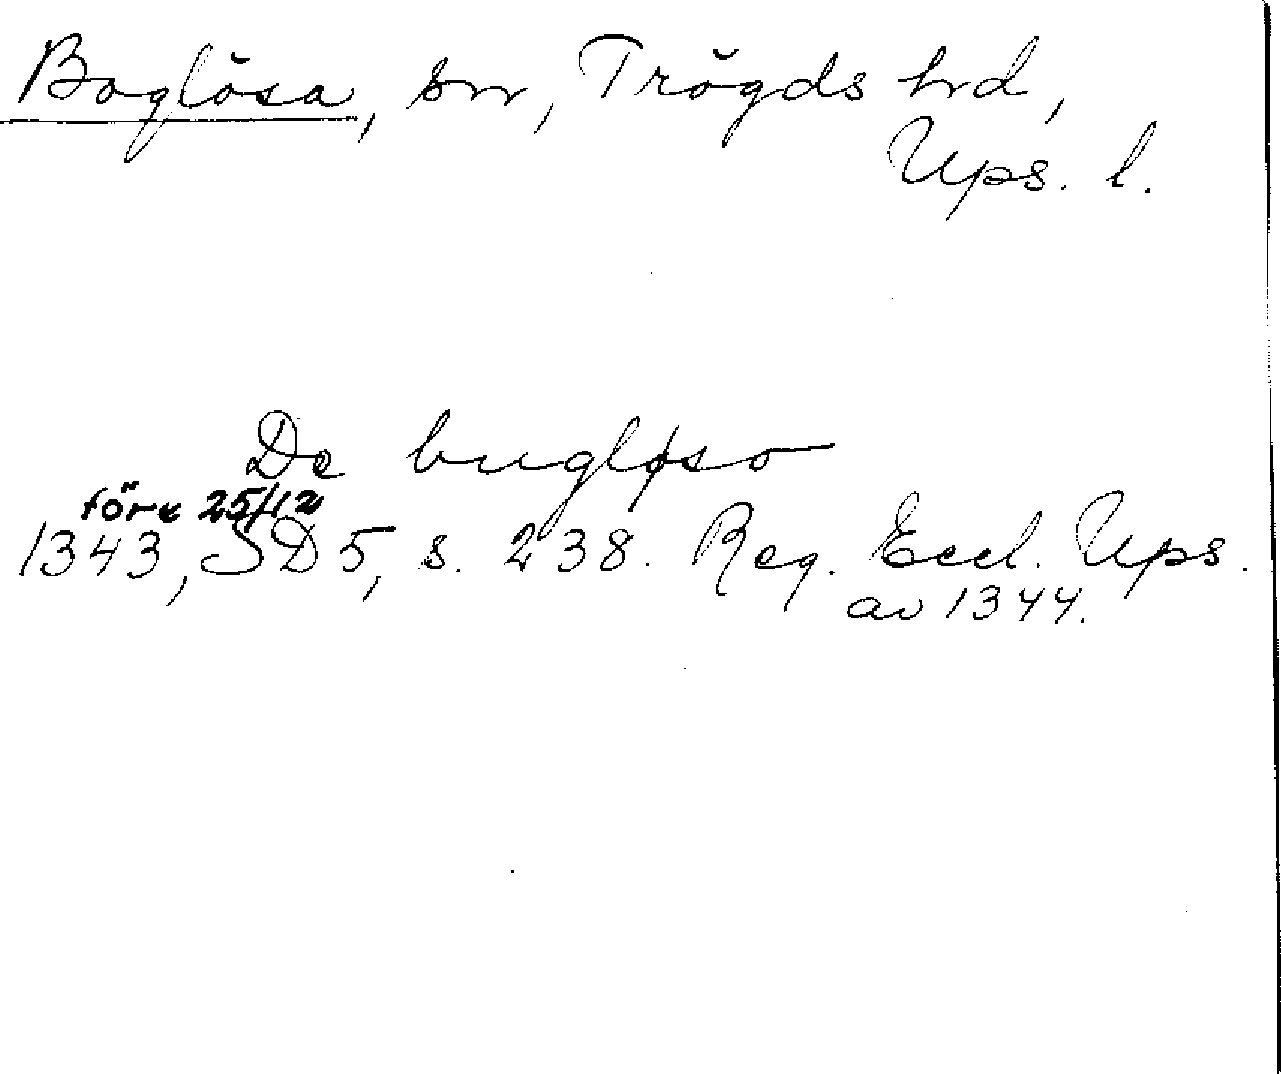 Boglösa, sn, Trögds hd,
Ups. l.
De bugløso
före 25/12
1343, SD 5, s. 238. Reg. Eccl. Ups.
av 1344.